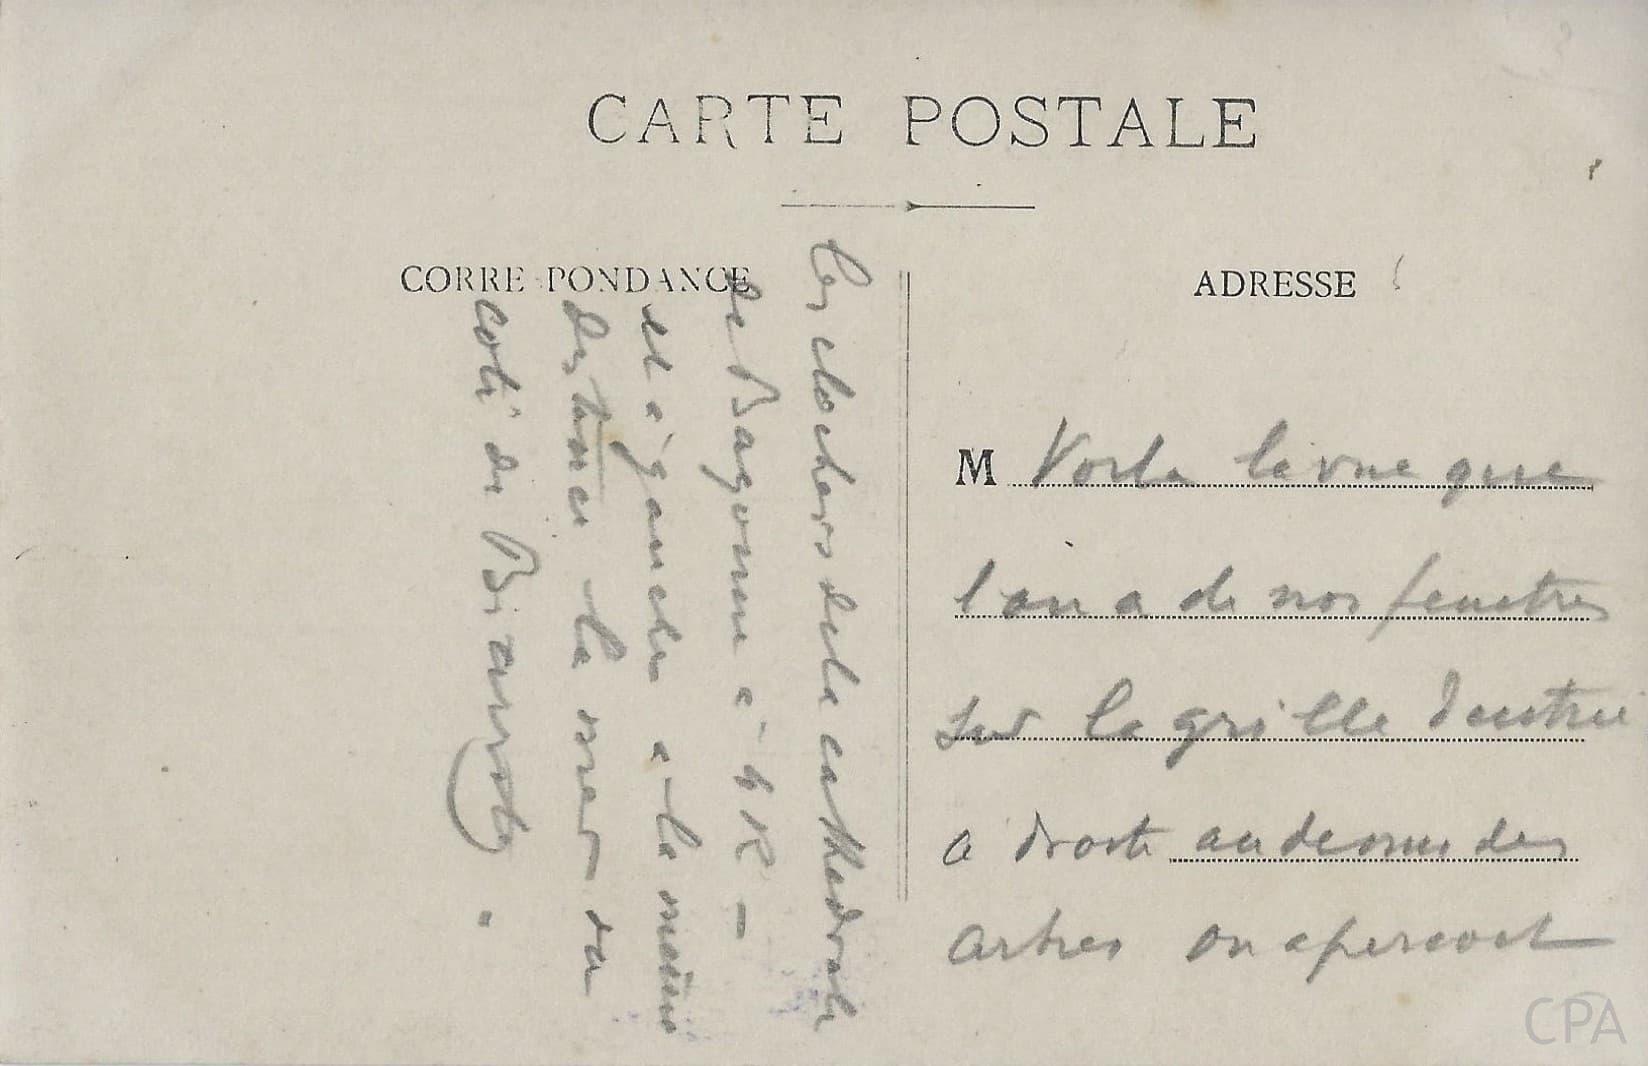 CARTE POSTALE
CORRESPONDANCE
ADRESSE
M Voila la vue que
l'on a de nos fenetres
sur la grille d'entrée
a droite au dessus des
arbres on apercoit
les clochers de la cathedrale
de Bayonne à 4 K –
et à gauche a la meme
distance la mer du
coté de Biarritz.
CPA